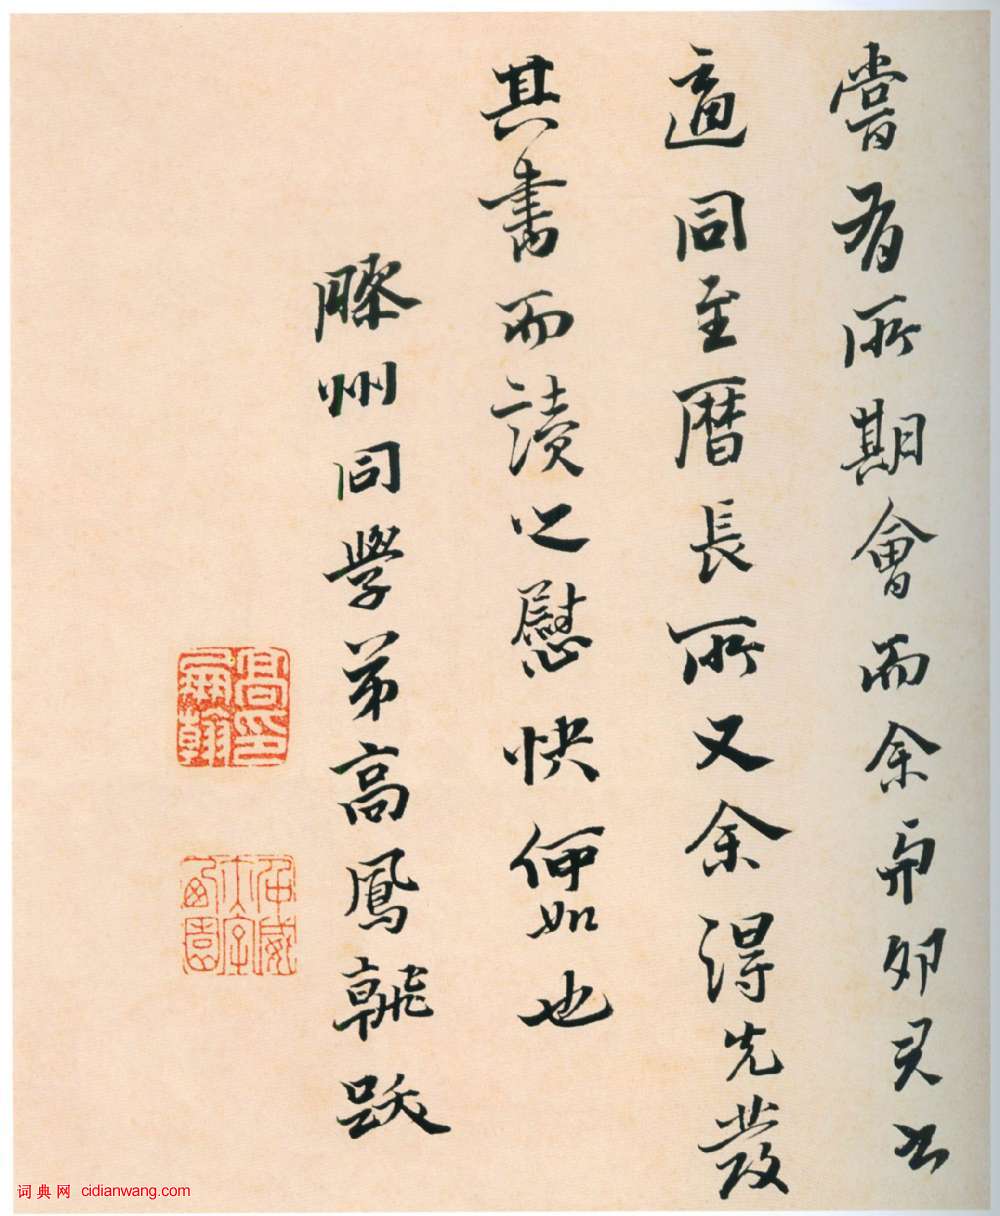 嘗有所期會而余卯君
適同至暦長所又余得先發
其書而讀之慰快何如也
膠州同學弟高鳳翰跋
高鳳翰印
仲威字西園
词典网 cidianwang.com